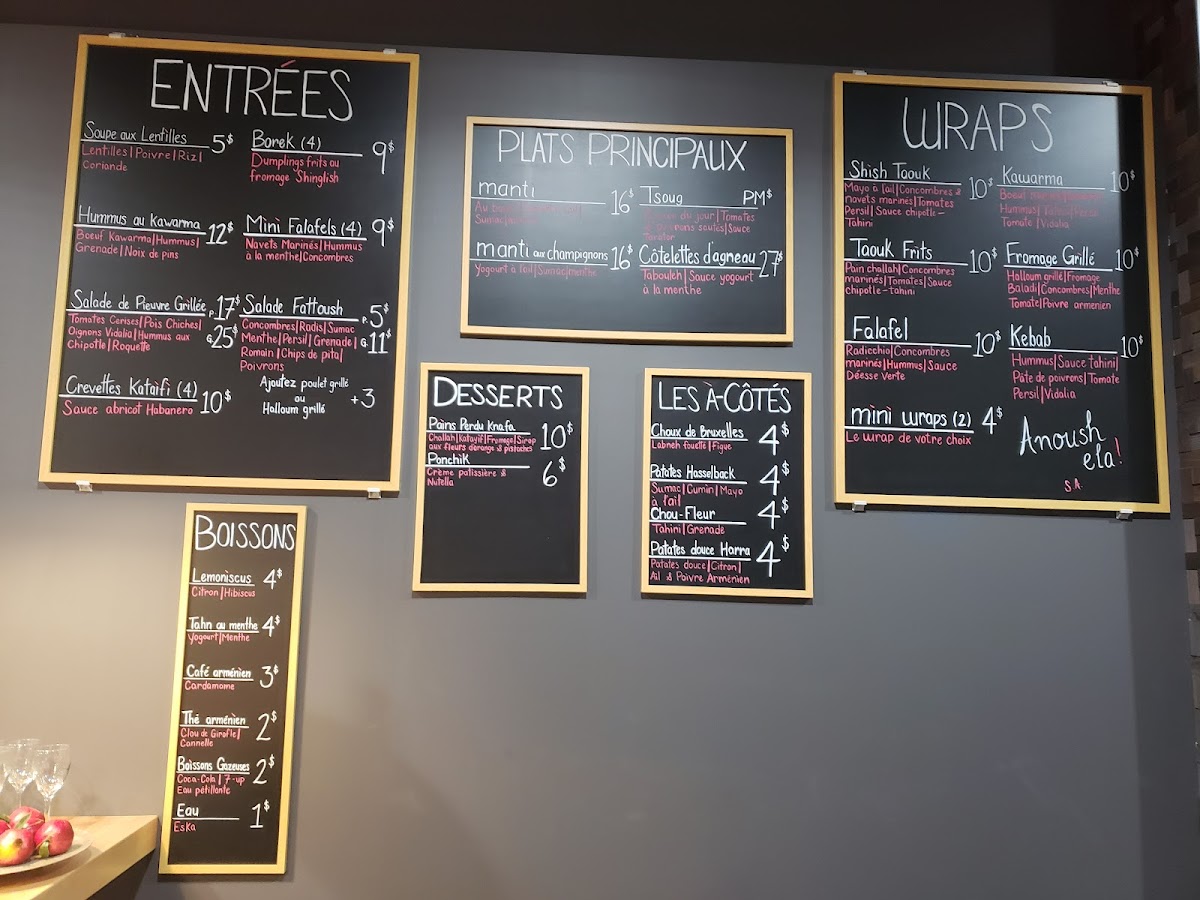 ENTRÉES
Soupe aux Lentilles 5$
Lentilles|Poivre|Riz|
Coriande
Borek (4) 9$
Dumplings frits au
fromage Shinglish
Hummus au kawarma 12$
Boeuf Kawarma|Hummus|
Grenade|Noix de pins
Mini Falafels (4) 9$
Navets Marinés|Hummus
à la menthe|Concombres
Salade de Pieuvre Grillée P.17$
Tomates Cerises|Pois Chiches|
Oignons Vidalia|Hummus aux G.25$
Chipotle|Roquette
Salade Fattoush P.5$
Concombres|Radis|Sumac
Menthe|Persil|Grenade| G.11$
Romain|Chips de pita|
Poivrons
Crevettes Kataifi (4) 10$
Sauce abricot Habanero
Ajoutez poulet grillé
ou +3
Halloum grillé
PLATS PRINCIPAUX
manti 16$
Tsoug PM$
du jour|Tomates
sautés|Sauce
manti aux champignons 16$
Yogourt à l'ail|Sumac|menthe
Côtelettes d'agneau 27$
Tabouleh|Sauce yogourt
à la menthe
WRAPS
Shish Taouk 10$
Mayo à l'ail|Concombres &
navets marinés|Tomates
Persil|Sauce chipotle-
Tahini
Kawarma 10$
Boeuf
Hummus|
Tomate|Vidalia
Taouk Frits 10$
Pain challah|Concombres
marinés|Tomates|Sauce
chipotle-tahini
Fromage Grillé 10$
Halloum grillé|Fromage
Baladi|Concombres|Menthe
Tomate|Poivre armenien
Falafel 10$
Radicchio|Concombres
marinés|Hummus|Sauce
Déesse Verte
Kebab 10$
Hummus|Sauce tahini|
Pâte de poivrons|Tomate
Persil|Vidalia
mini wraps (2) 4$
Le wrap de votre choix
Anoush
ela!
S.A.
DESSERTS
Pains Perdu Knafa 10$
Challah|Katayif|Fromage|Sirop
aux fleurs d'orange & pistaches
Ponchik 6$
Crème patissière &
Nutella
LES À-CÔTÉS
Choux de Bruxelles 4$
Labneh fouetté|Figue
Patates Hasselback 4$
Sumac|Cumin|Mayo
à l'ail
Chou-Fleur 4$
Tahini|Grenade
Patates douce Harra 4$
Patates douce|Citron|
Ail & Poivre Arménien
BOISSONS
Lemoniscus 4$
Citron|Hibiscus
Tahn au menthe 4$
Yogourt|Menthe
Café arménien 3$
Cardamome
Thé arménien 2$
Clou de Girofle|
Cannelle
Boissons Gazeuses 2$
Coca-Cola|7-up
Eau pétillante
Eau 1$
Eska